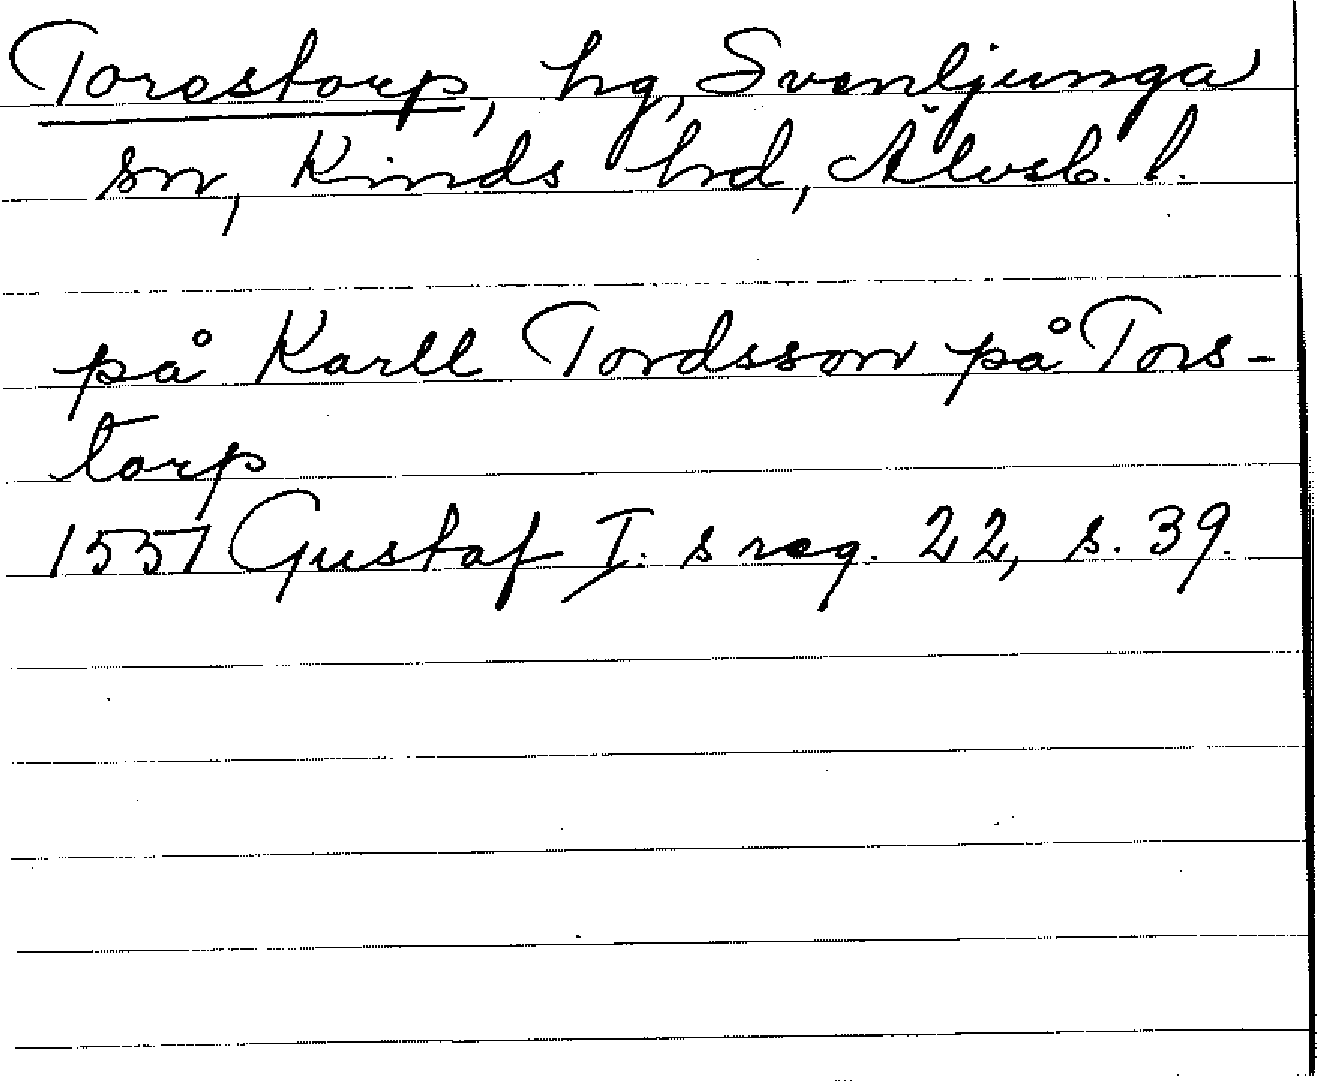 Torestorp, hg, Svenljunga
sn, Kinds hd, Älvsb. l.
på Karll Tordsson på Tors-
torp
1551 Gustaf I. s reg. 22, s. 39.